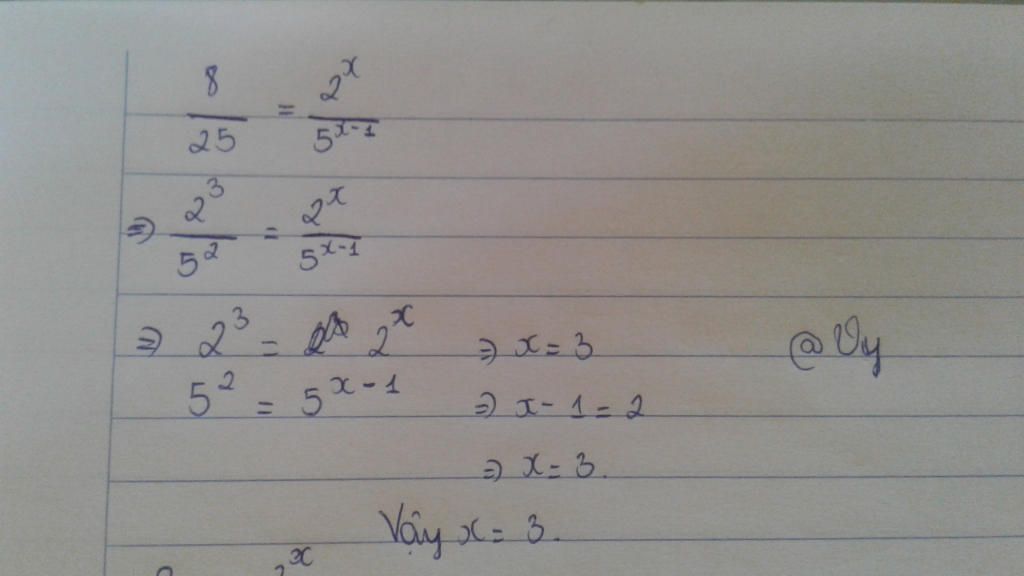 8/25 = 2^x/5^(x-1)
⇒ 2^3/5^2 = 2^x/5^(x-1)
⇒ 2^3 = 2^x ⇒ x = 3 @Vy
5^2 = 5^(x-1) ⇒ x - 1 = 2
⇒ x = 3.
Vậy x = 3.